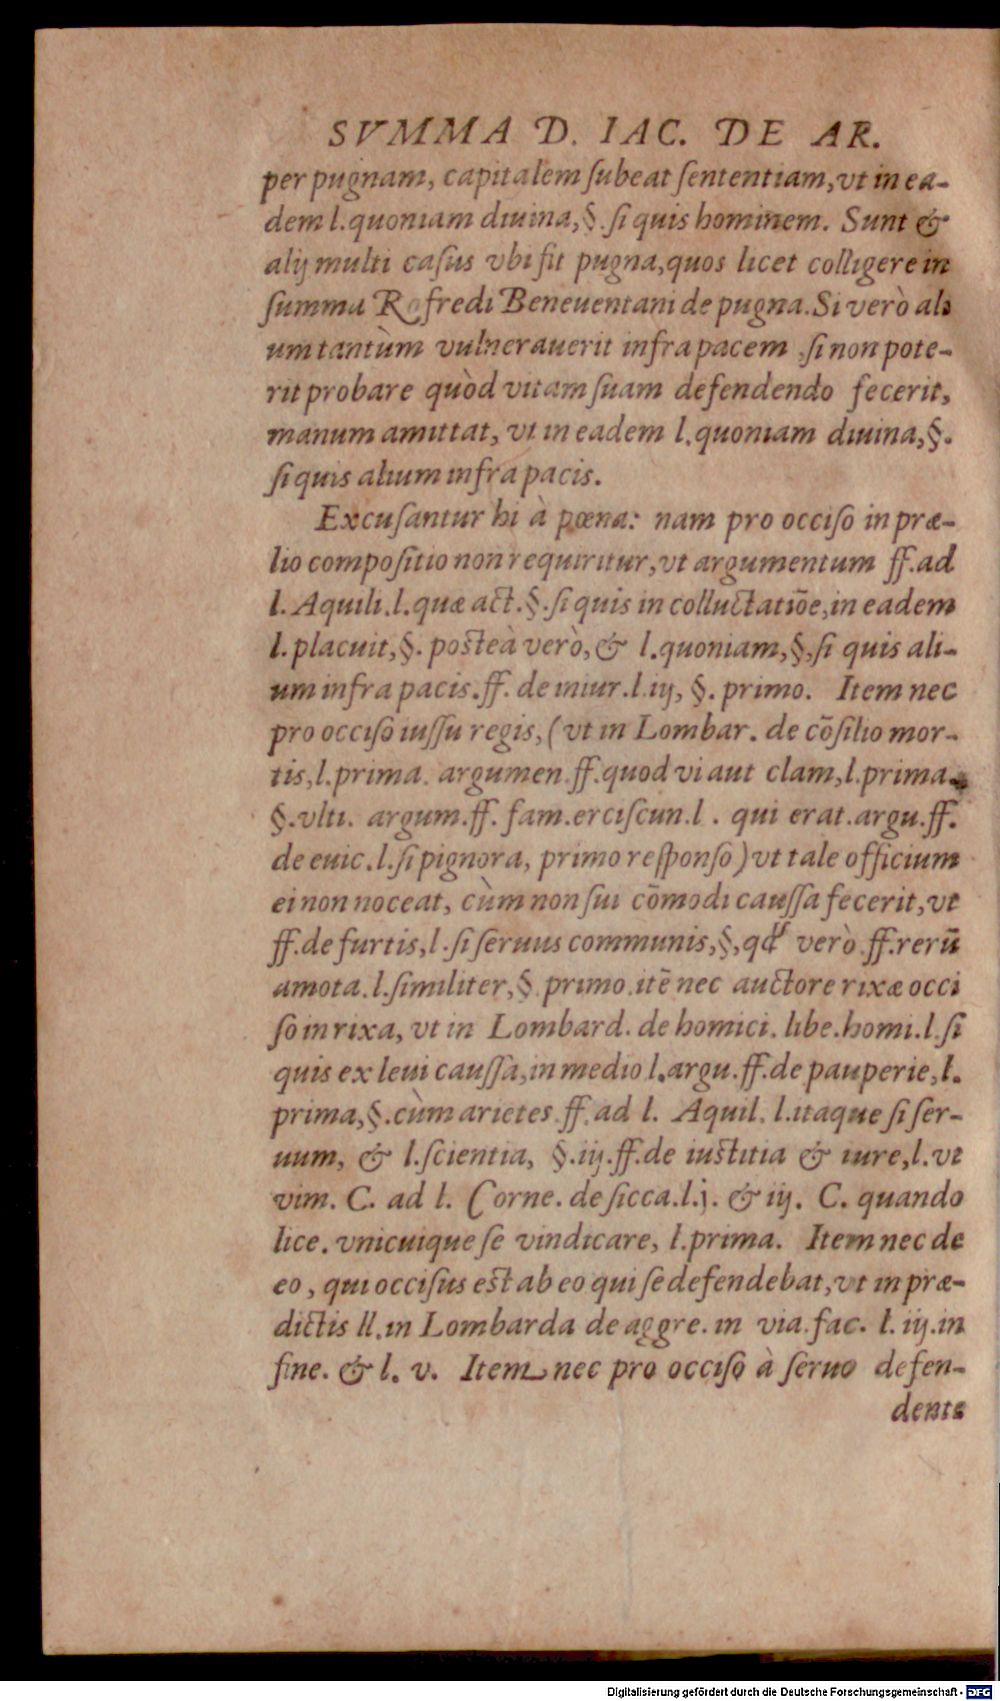 SVMMA D. IAC. DE AR.
per pugnam, capitalem ſubeat ſententiam, vt in ea-
dem l. quoniam diuina, §. ſi quis hominem. Sunt &
alij multi caſus vbi fit pugna, quos licet colligere in
ſumma Rofredi Beneuentani de pugna. Si verò ali
um tantùm vulnerauerit infra pacem, ſi non pote-
rit probare quòd vitam ſuam defendendo fecerit,
manum amittat, vt in eadem l. quoniam diuina, §.
ſi quis alium infra pacis.
Excuſantur hi à pœna: nam pro occiſo in præ-
lio compoſitio non requiritur, vt argumentum ff. ad
l. Aquili. l. quæ act. §. ſi quis in colluctatiōe, in eadem
l. placuit, §. posteà verò, & l. quoniam, §, ſi quis ali-
um infra pacis. ff. de iniur. l. iij, §. primo. Item nec
pro occiſo iuſſu regis, (vt in Lombar. de cōſilio mor-
tis, l. prima. argumen. ff. quod vi aut clam, l. prima.
§. vlti. argum. ff. fam. erciſcun. l. qui erat. argu. ff.
de euic. l. ſi pignora, primo reſponſo) vt tale officium
ei non noceat, cùm non ſui cōmodi cauſſa fecerit, vt
ff. de furtis, l. ſi ſeruus communis, §, qđ verò. ff. rerū
amota. l. ſimiliter, §. primo. itē nec auctore rixæ occi
ſo in rixa, vt in Lombard. de homici. libe. homi. l. ſi
quis ex leui cauſſa, in medio l. argu. ff. de pauperie, l.
prima, §. cùm arietes. ff. ad l. Aquil. l. itaque ſi ſer-
uum, & l. ſcientia, §. iij. ff. de iustitia & iure, l. vt
vim. C. ad l. Corne. de ſicca. l. j. & iij. C. quando
lice. vnicuique ſe vindicare, l. prima. Item nec de
eo, qui occiſus est ab eo qui ſe defendebat, vt in præ-
dictis ll. in Lombarda de aggre. in via. fac. l. iij. in
fine. & l. v. Item nec pro occiſo à ſeruo defen-
dente
Digitalisierung gefördert durch die Deutsche Forschungsgemeinschaft - DFG